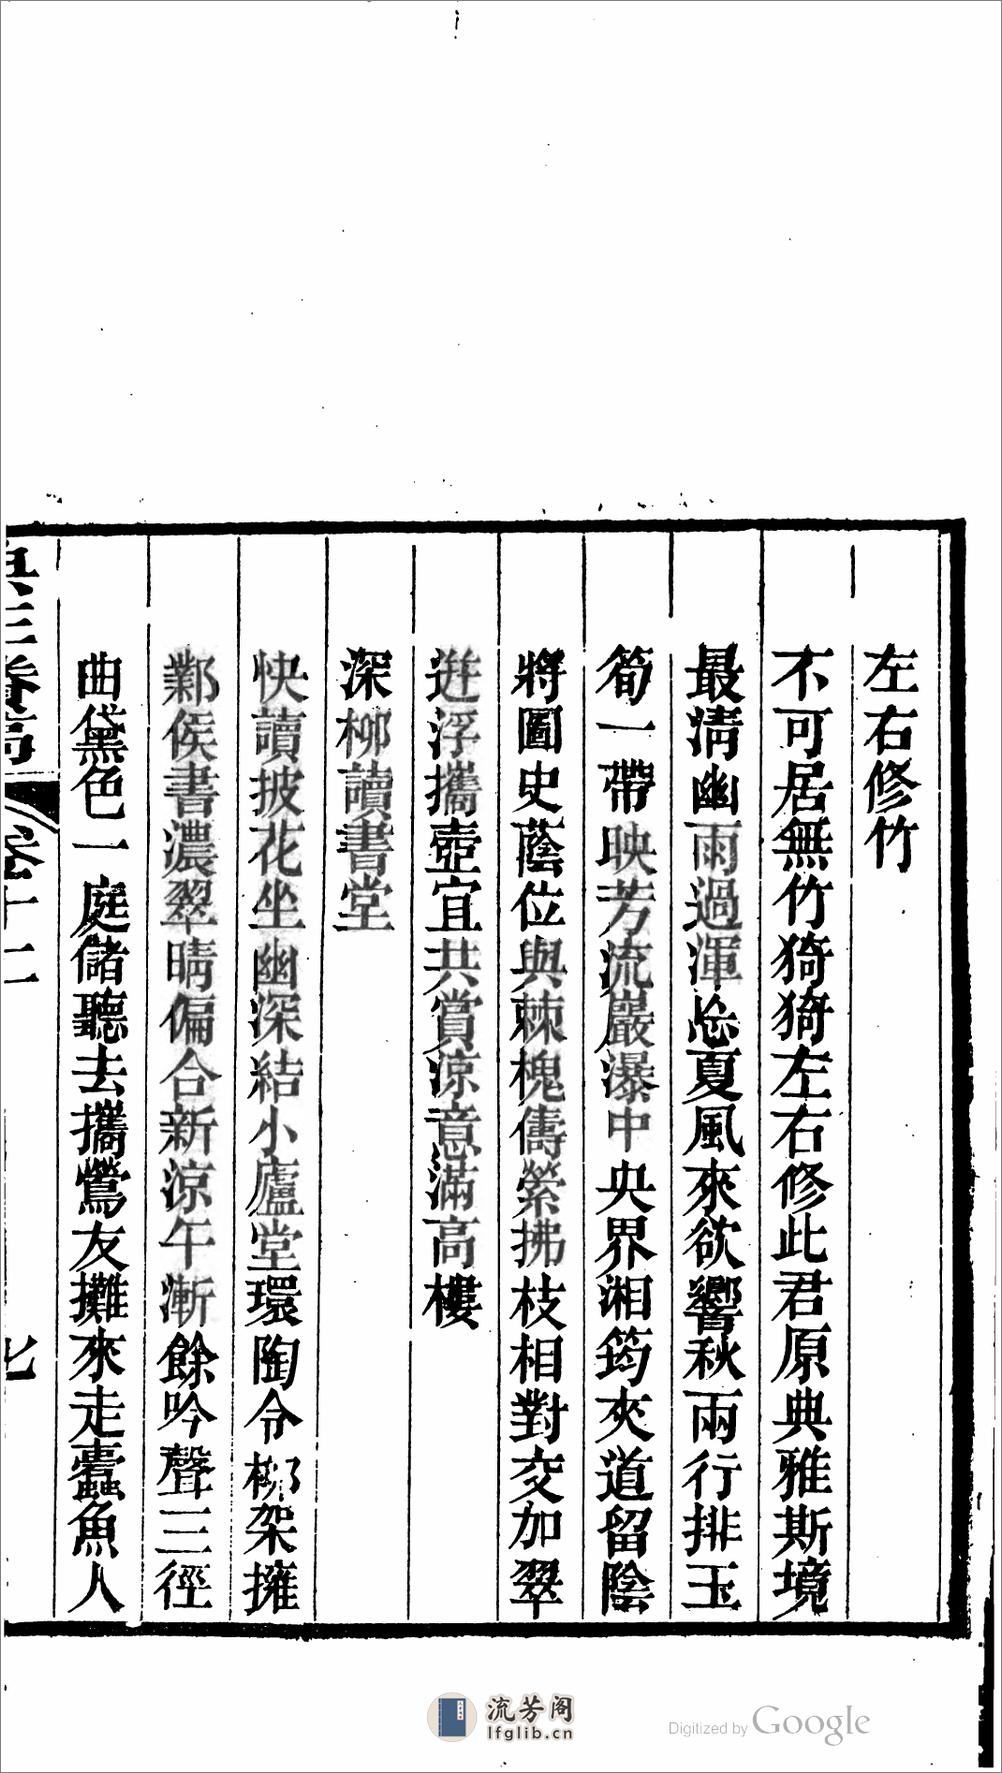 左右修竹
不可居無竹猗猗左右修此君原典雅斯境
最淸幽雨過渾忘夏風來欲響秋兩行排玉
筍一帶映芳流巖瀑中央界湘筠夾道留陰
將圖史蔭位與棘槐儔縈拂枝相對交加翠
逬浮攜壺宜共賞涼意滿高樓
深柳讀書堂
快讀披花坐幽深結小廬堂環陶令柳架擁
鄴侯書濃翠晴偏合新涼午漸餘吟聲三徑
曲黛色一庭儲聽去攜鶯友攤來走蠹魚人
卷十二
七
流芳阁
lfglib.cn
Digitized by Google